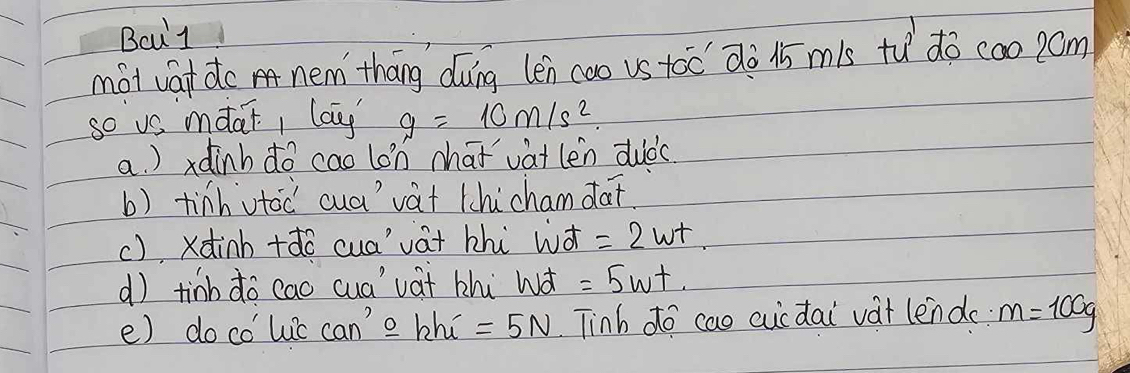 Bài 1
một vật đc ném thẳng đứng lên cao vs tốc độ 15 m/s từ độ cao 20m
so vs mđất, lấy g = 10 m/s².
a.) xđịnh độ cao lớn nhất vật lên được.
b) tính vtốc của vật khi chạm đất.
c). Xđịnh tđộ của vật khi Wđ = 2Wt.
d) tính độ cao của vật khi Wđ = 5Wt.
e) do có lực cản o khí = 5N. Tính độ cao cực đại vật lên đc. m = 100g